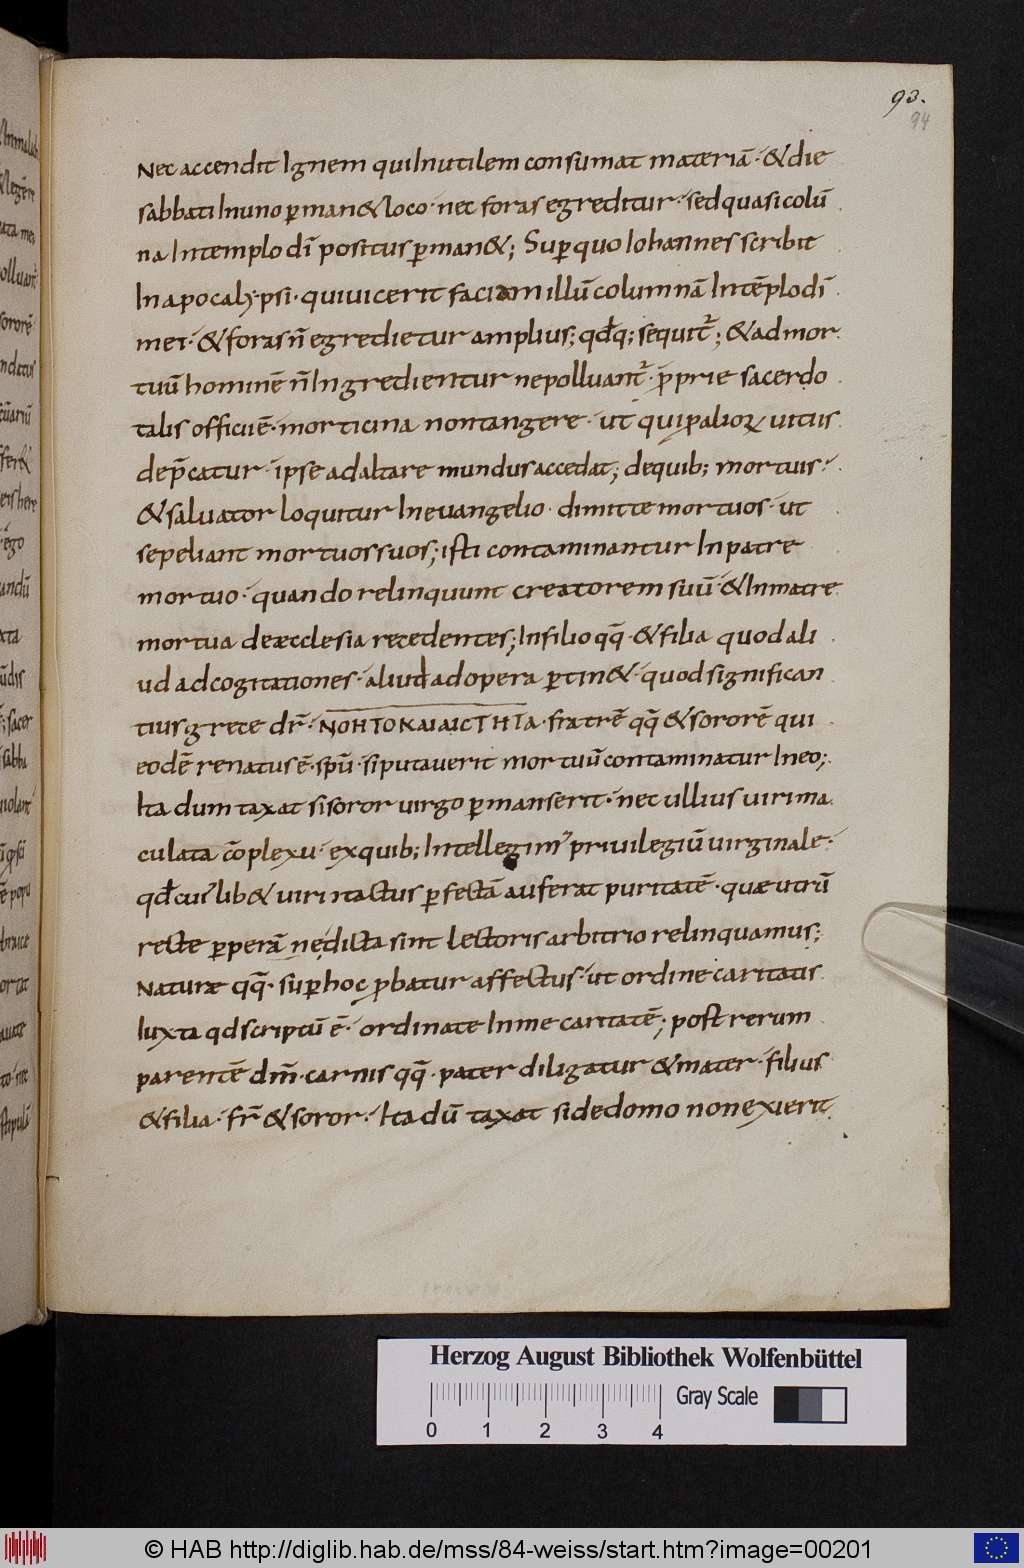 93.
94
Nec accendit Ignem quiInutilem consumat materiā· &die
sabbati Inuno ꝑman&loco· nec foras egreditur· sedquasicolū
na Intemplo dī positus ꝑman&; Suꝑquo Iohannes scribit
Inapocaly·psi· quiuicerit faciam illūcolumnā Intēplo dī
mei· &foras n̄ egredietur amplius; qđq; sequit̄; &admor
tuū hominē n̄Ingredientur nepolluant̄· ꝓprie sacerdo
talis officii ē· morticina nontangere· ut quiꝓalioꝝ uitiis
dep̄catur· ipse adaltare mundus accedat; dequib; mortuis·
&saluator loquitur Ineuangelio· dimitte mortuos· ut
sepeliant mortuos suos; isti contaminantur In patre
mortuo· quando relinquunt creatorem suū· &Inmatre
mortua deæcclesia recedentes; Infilio qq̄· &filia quod ali
ud adcogitationes· aliud adopera ꝑtin&· quod significan
tius grece dr̄· ΝΟΗΤΟΚΑΙΑΙСΤΗΤΑ· fratrē qq̄ &sororē qui
eodē renatus ē· spū· siputauerit mortuū contaminatur Ineo;
Ita dum taxat sisoror uirgo ꝑmanserit· nec ullius uiri ma
culata cōplexu· exquib; Intellegim' priuilegiū uirginale·
qđ cui' lib& uiri tactus ꝑfectā auferat puritatē· quæ utrū
recte ꝑperā nędicta sint lectoris arbitrio relinquamus;
Naturæ qq̄· suꝑhoc ꝓbatur affectus· ut ordine caritatis
Iuxta qd scriptū ē· ordinate Inme caritatē; post rerum
parentē dm̄· carnis qq̄· pater diligatur &mater· filius
&filia· fr̄ &soror· Ita dū taxat si dedomo non exierit
Herzog August Bibliothek Wolfenbüttel
Gray Scale
0 1 2 3 4
© HAB http://diglib.hab.de/mss/84-weiss/start.htm?image=00201